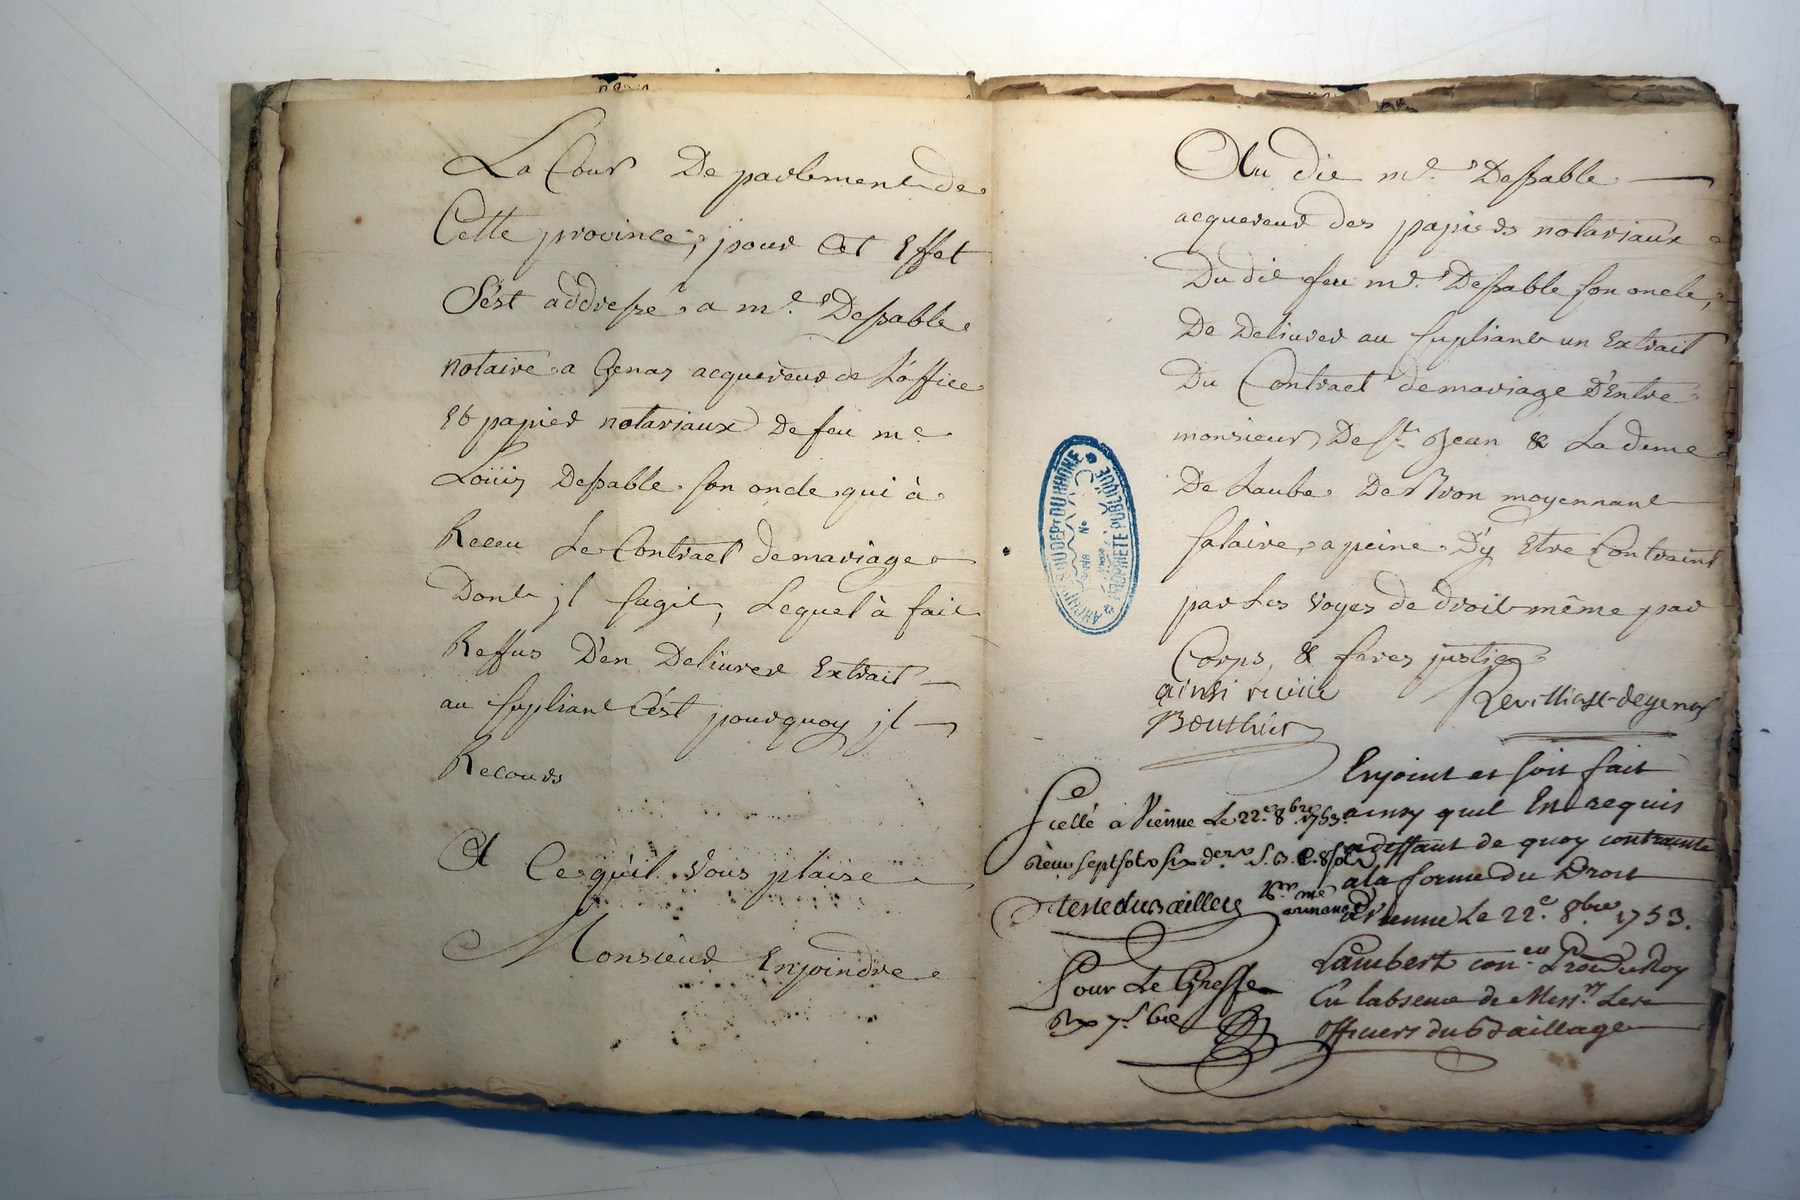 La Cour De parlement de
Cette province, pour Cet Effet
S'est addressé a me. Dessable
notaire a Genas acquereur de L'office
Et papier notariaux De feu me
Loüis Dessable son oncle qui à
Receu Le Contract de mariage
Dont jl sagit, Lequel à fait
Reffus D'en Deliurer Extrait
au supliant C'est pourquoy jl
Recours
A Ce quil Vous plaise
Monsieur Enjoindre
Au dit me. Dessable
acquereur des papiers notariaux
Du dit feu me. Dessable son oncle,
De Deliurer au supliant un Extrait
Du Contract de mariage D'Entre
monsieur De St. Jean & La deme
De Laube De Bron moyennant
salaire, a peine D'y Etre Contraint
par Les Voyes de droit même par
Corps, & ferez justice
ainsi
Bouthier
Revilliast-degenas
ARCHIVES DU DEPT DU RHÔNE
PROPRIÉTÉ PUBLIQUE
Enjoint et soit fait
ainsy quil En Requis
a deffaut de quoy contrainte
a la forme du Droit
a Vienne Le 22e. 8bre. 1753.
Lambert coner. Du Roy
En labsence de Messrs. Les
officiers du Bailliage
Scellé a Vienne Le 22e. 8bre. 1753.
Receu sept sols six ders
Pour Le Greffe